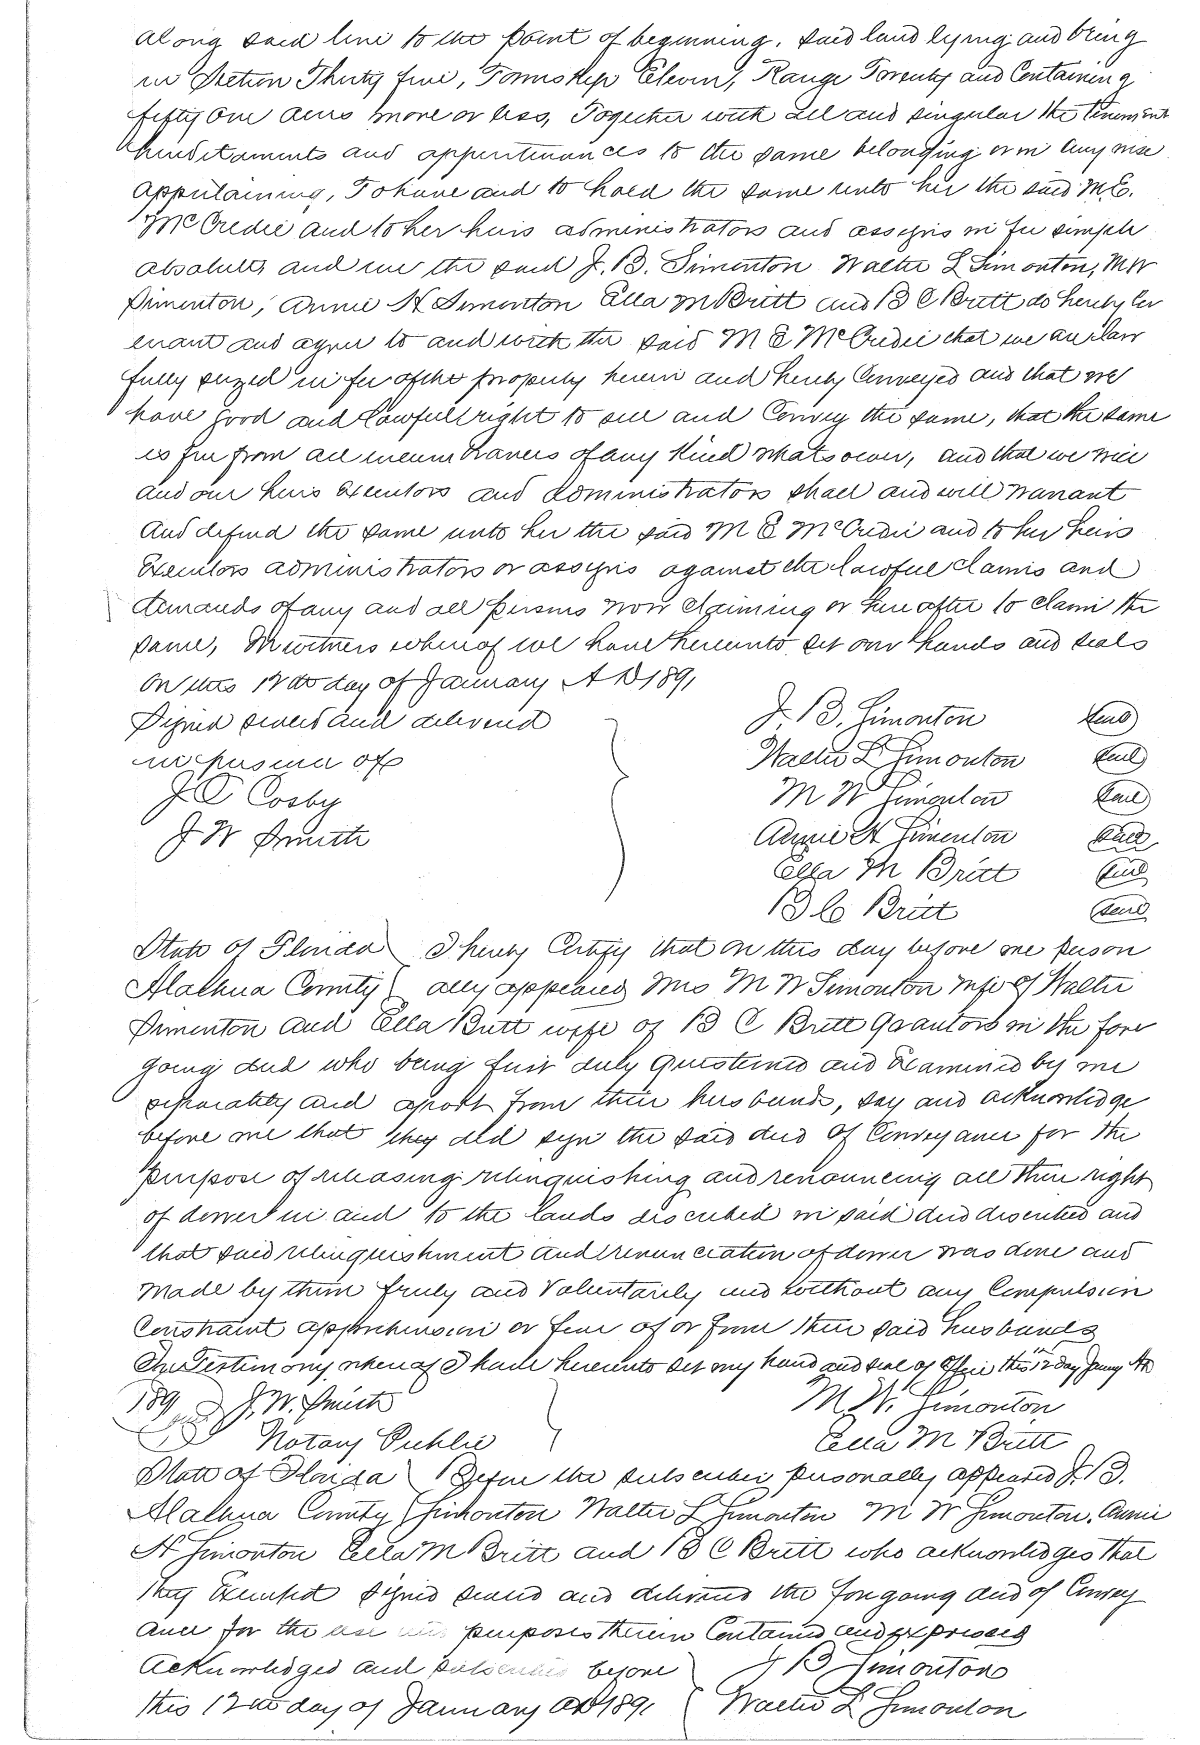 along said line to the point of beginning. Said land lying and being
in Section Thirty five, Township Eleven, Range Twenty and Containing
fifty one acres more or less, Together with all and singular the tenements
hereditaments and appertinances to the same belonging or in any wise
appertaining, To have and to hold the same unto her the said M. E.
McCredie and to her heirs administrators and assigns in fee simple
absolute, and we the said J. B. Simonton Walter L Simonton, M W
Simonton, Annie H Simonton Ella M Britt and B C Britt do hereby Cov
enant and agree to and with the said M E McCredie that we are law
fully seized in fee of the property herein and hereby Conveyed and that we
have good and lawful right to sell and Convey the same, that the same
is free from all incumbrances of any Kind whatsoever, and that we will
and our heirs Executors and administrators shall and will warrant
and defend the same unto her the said M E McCredie and to her heirs
Executors administrators or assigns against the lawful claims and
demands of any and all persons now claiming or hereafter to claim the
same, In witness whereof we have hereunto set our hands and seals
on this 12th day of January A D 1891
Signed sealed and delivered J. B. Simonton Seal
in presence of Walter L Simonton Seal
J C Cosby M W Simonton Seal
J W Smith Annie H Simonton Seal
Ella M Britt Seal
B C Britt Seal
State of Florida I hereby Certify that on this day before me person
Alachua County ally appeared Mrs M W Simonton wife of Walter
Simonton and Ella Britt wife of B C Britt Grantors in the fore
going deed who being first duly questioned and Examined by me
separately and apart from their husbands, say and acknowledge
before me that they did sign the said deed of Conveyance for the
purpose of releasing relinquishing and renouncing all their right
of dower in and to the lands described in said deed described and
that said relinquishment and renunciation of dower was done and
made by them freely and Voluntarily and without any Compulsion
Constraint apprehension or fear of or from their said husbands
In Testimony whereof I have hereunto set my hand and seal of Office this 12 day Jany AD
1891 J. W. Smith M. W. Simonton
Notary Public Ella M Britt
State of Florida Before the subscriber personally appeared J. B.
Alachua County Simonton Walter L Simonton M W Simonton, Annie
H Simonton Ella M Britt and B C Britt who acknowledges that
they Executed signed sealed and delivered the foregoing deed of Convey
ance for the use and purposes therein Contained and expressed
Acknowledged and subscribed before J B Simonton
this 12th day of January AD 1891 Walter L Simonton